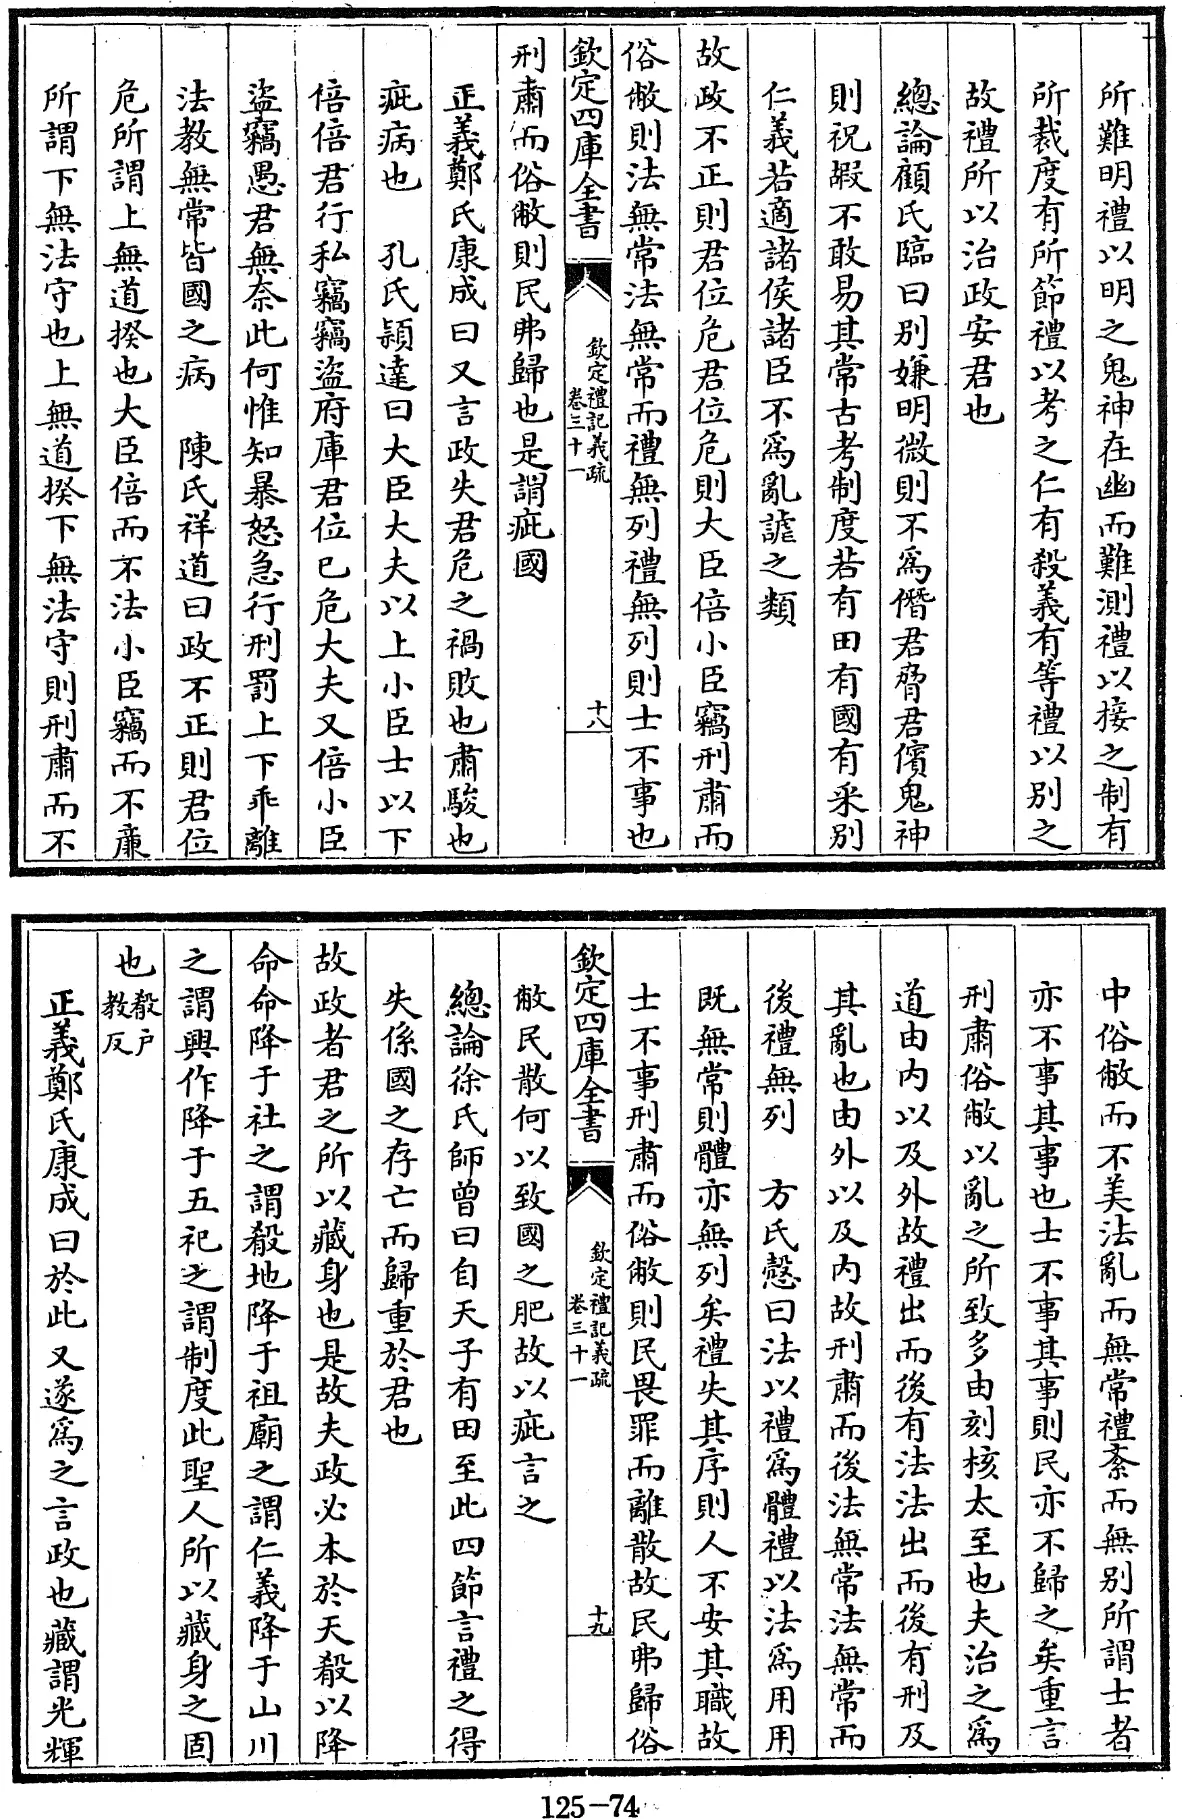 所難明禮以明之鬼神在幽而難測禮以接之制有
所裁度有所節禮以考之仁有殺義有等禮以別之
故禮所以治政安君也
總論顧氏臨曰別嫌明微則不為僭君脅君儐鬼神
則祝嘏不敢易其常古考制度若有田有國有采別
仁義若適諸侯諸臣不為亂謔之類
故政不正則君位危君位危則大臣倍小臣竊刑肅而
俗敝則法無常法無常而禮無列禮無列則士不事也
欽定四庫全書 欽定禮記義疏 卷三十一 十八
刑肅而俗敝則民弗歸也是謂疵國
正義鄭氏康成曰又言政失君危之禍敗也肅駿也
疵病也 孔氏穎達曰大臣大夫以上小臣士以下
倍倍君行私竊竊盜府庫君位已危大夫又倍小臣
盜竊愚君無奈此何惟知暴怒急行刑罰上下乖離
法教無常皆國之病 陳氏祥道曰政不正則君位
危所謂上無道揆也大臣倍而不法小臣竊而不廉
所謂下無法守也上無道揆下無法守則刑肅而不
中俗敝而不美法亂而無常禮紊而無別所謂士者
亦不事其事也士不事其事則民亦不歸之矣重言
刑肅俗敝以亂之所致多由刻核太至也夫治之為
道由內以及外故禮出而後有法法出而後有刑及
其亂也由外以及内故刑肅而後法無常法無常而
後禮無列 方氏慤曰法以禮為體禮以法為用用
既無常則體亦無列矣禮失其序則人不安其職故
士不事刑肅而俗敝則民畏罪而離散故民弗歸俗
欽定四庫全書 欽定禮記義疏 卷三十一 十九
敝民散何以致國之肥故以疵言之
總論徐氏師曾曰自天子有田至此四節言禮之得
失係國之存亡而歸重於君也
故政者君之所以藏身也是故夫政必本於天殽以降
命命降于社之謂殽地降于祖廟之謂仁義降于山川
之謂興作降于五祀之謂制度此聖人所以藏身之固
也殽户教反
正義鄭氏康成曰於此又遂為之言政也藏謂光輝
125-74